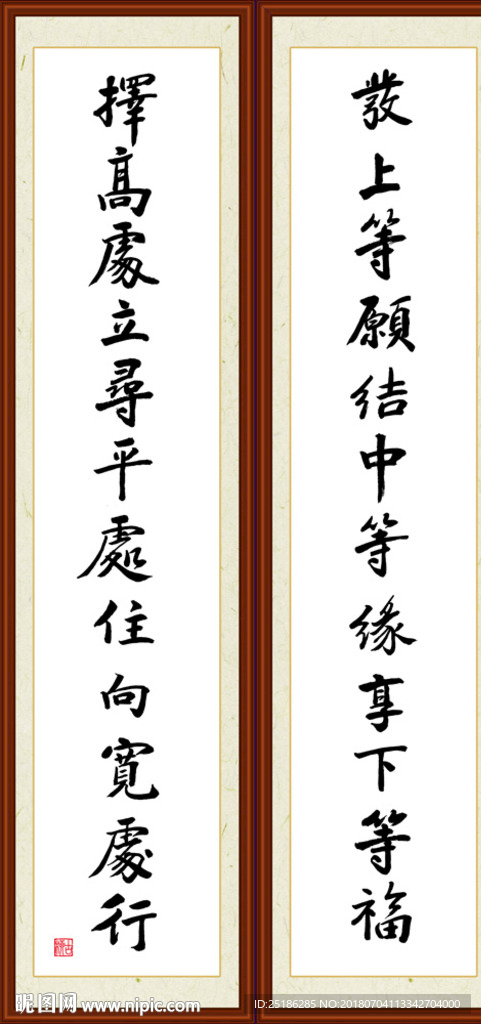 發上等願結中等緣享下等福
擇高處立尋平處住向寬處行
昵图网 www.nipic.com
ID:25186285 NO:20180704113342704000